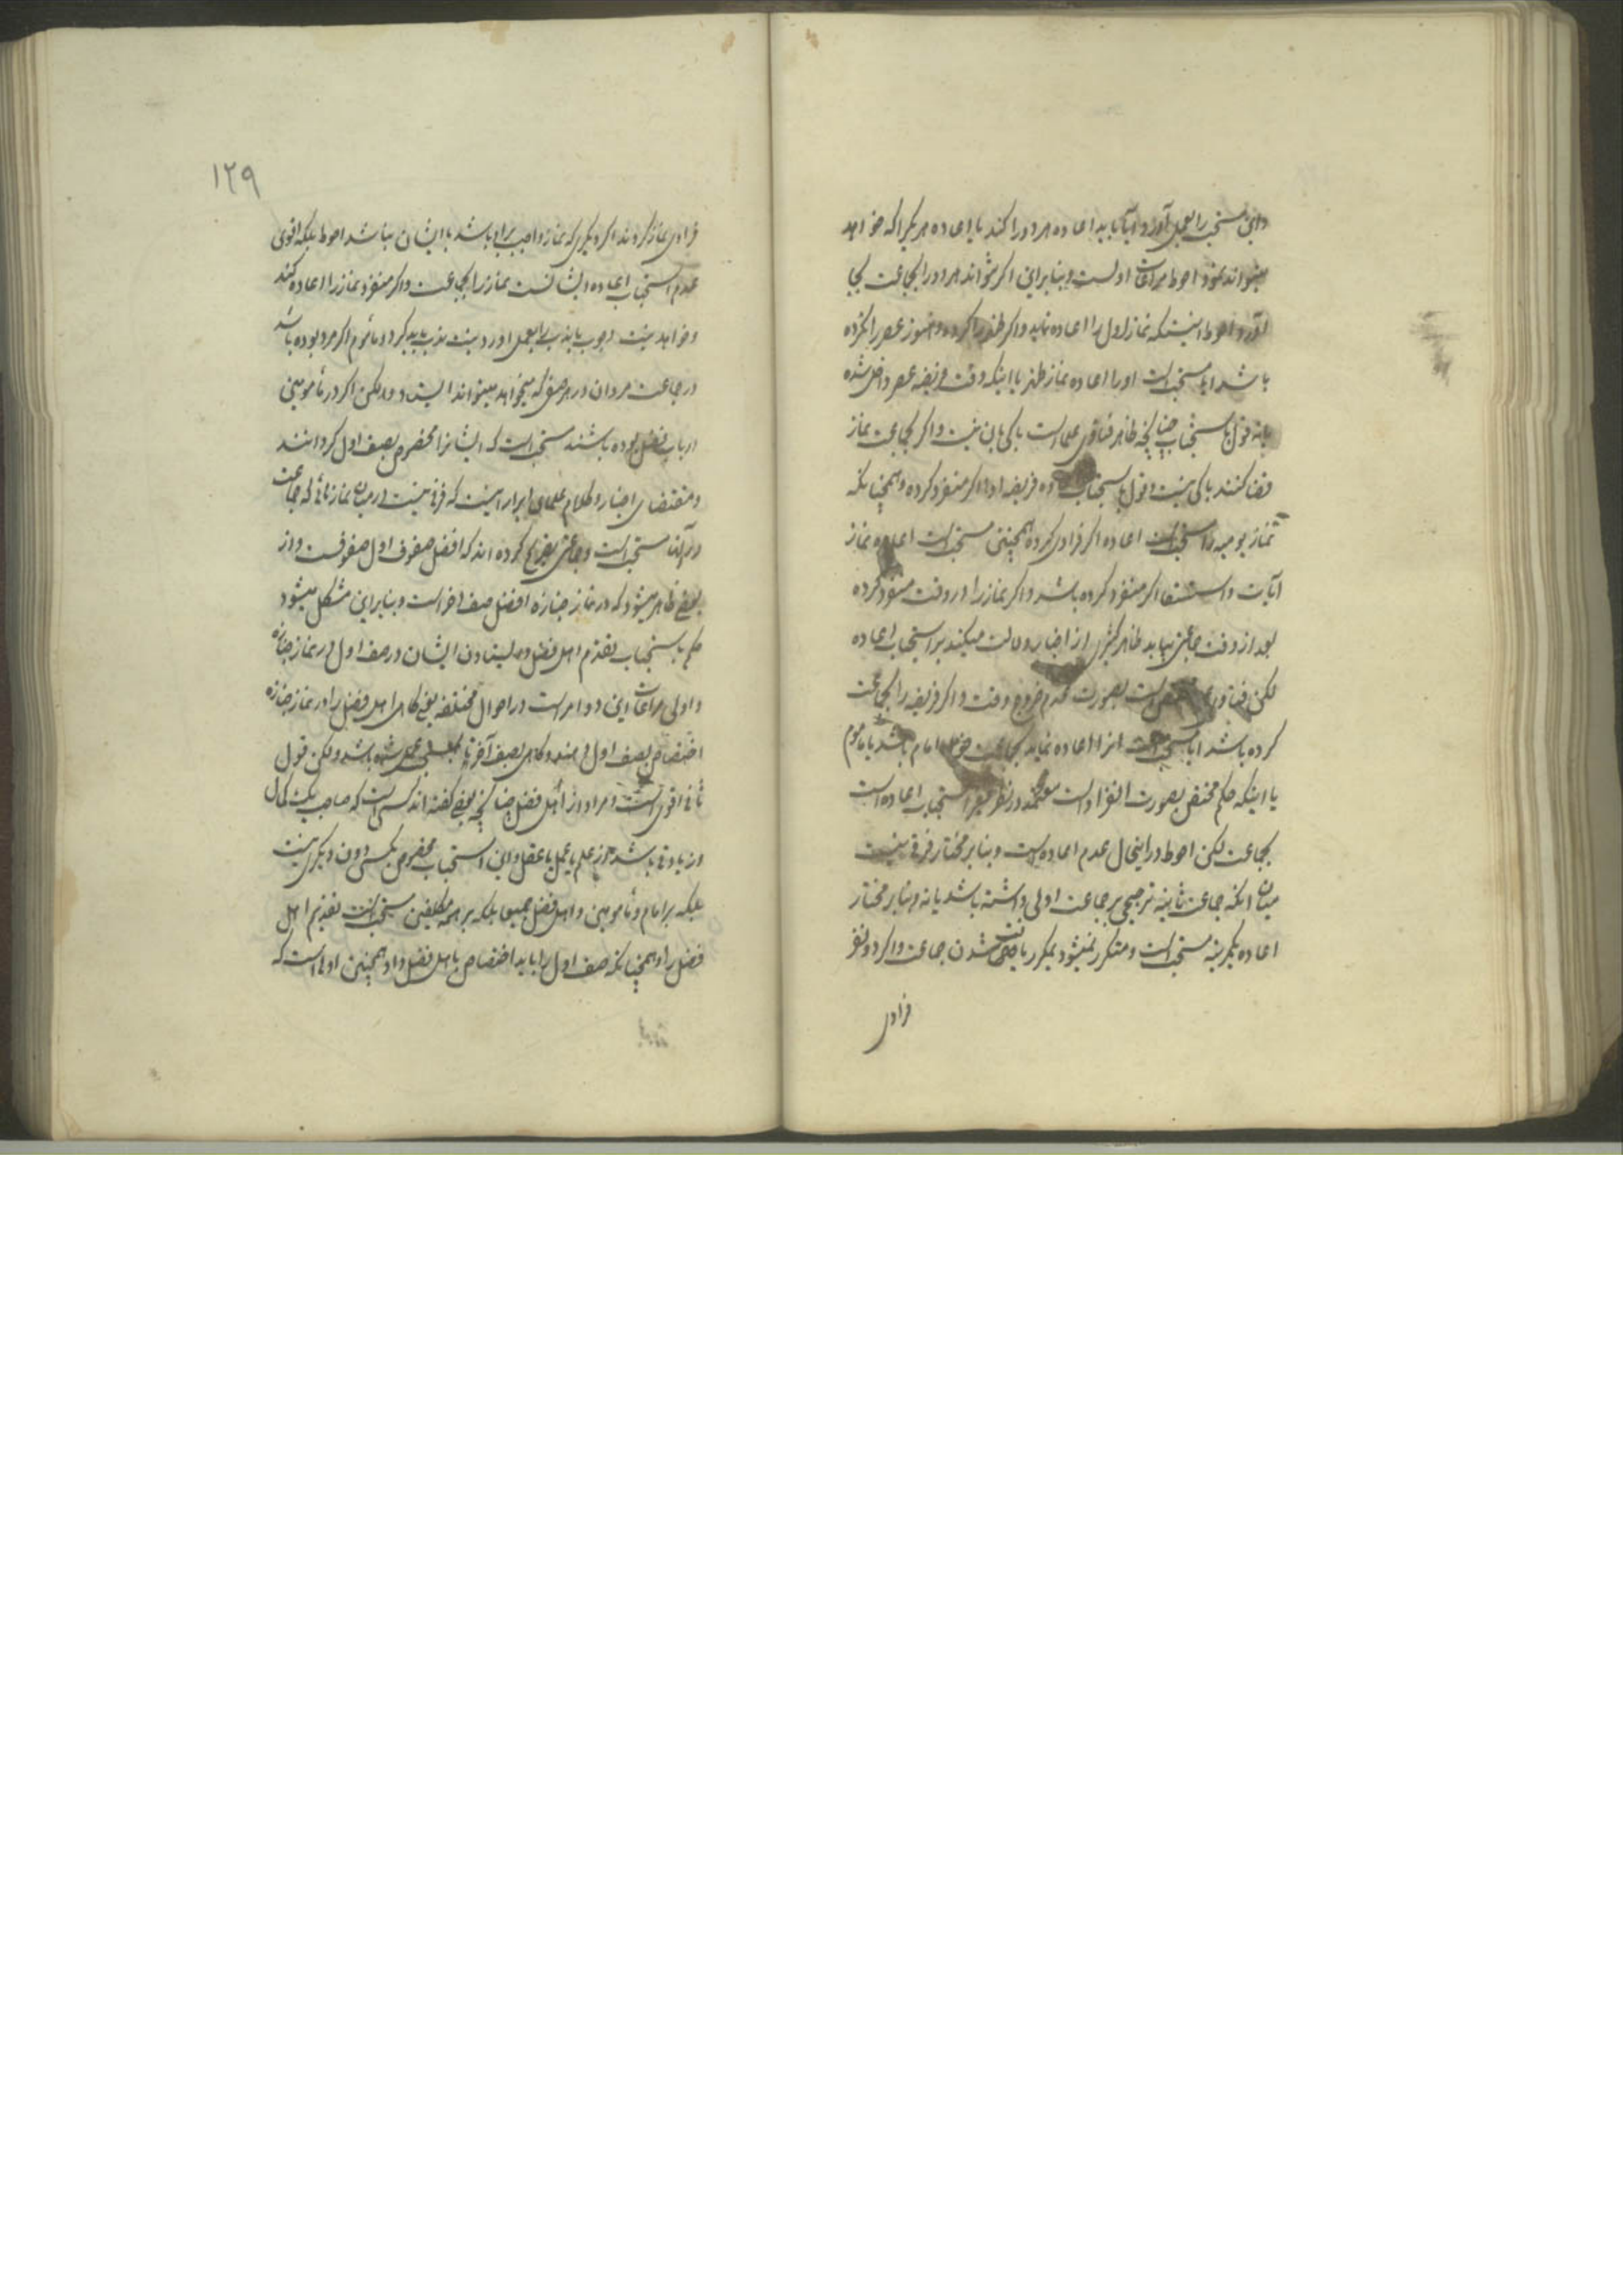 واین مستحب را بعمل آورد آیا باید اعاده هر دو را کند یا اعاده هر یکرا که خواهد
میتواند نمود احوط مراعات اولست و بنابراین اگر نتواند هر دو را بجماعت بجا
آورد احوط اینستکه نماز اول را اعاده نماید و اگر ظهر را کرده و هنوز عصر را نکرده
باشد ایا مستحب است او را اعاده نماز ظهر با اینکه وقت فریضه عصر داخل شده
یا نه قول باستحباب چنانچه ظاهر فتاوی علما است باکی بان نیست و اگر بجماعت نماز
قضا کنند باکی نیست و قول باستحباب اعاده فریضه ادا اگر منفرد کرده و همچنانکه
نماز یومیه را مستحب است اعاده اگر فرادی کرده همچنین مستحب است اعاده نماز
آیات و استسقا اگر منفرد کرده باشد و اگر نماز را در وقت منفرد کرده
بعد از وقت جماعتی بیابد ظاهر کثیری از اخبار دلالت میکند بر استحباب اعاده
لکن فتاوی بصورت عدم خروج وقت و اگر فریضه را بجماعت
کرده باشد ایا مستحب است انرا اعاده نماید بجماعت خواه امام باشد یا ماموم
یا اینکه حکم مختص بصورت انفراد است معتمد در نظر فقیر استحباب اعاده است
بجماعت لکن احوط در اینحال عدم اعاده است و بنابر مختار فرقی نیست
میان انکه جماعت ثانیه ترجیحی بر جماعت اولی داشته باشد یا نه و بنابر مختار
اعاده یکمرتبه مستحب است و متکرر نمیشود بمکرر یافت شدن جماعت و اگر دو نفر
فرادی
۱۲۹
فرادی نماز کردند اگر دیگری که نماز واجب برای باشد با ایشان نباشد احوط بلکه اقوی
عدم استحباب اعاده ایشانست نماز را بجماعت و اگر منفرد نماز را اعاده کند
و خواهد نیت وجوب یا ندب را بعمل اورد نیت ندب باید کرد و ماموم اگر مرد بوده باشد
در جماعت مردان در هر صفی که میخواهد میتواند ایستاد ولکن اگر در مامومین
ارباب فضل بوده باشند مستحب است که ایشانرا مخصوص بصف اول گردانند
و مقتضای اخبار و کلام علمای ابرار اینست که فرقی نیست در میان نمازهائی که جماعت
در آنها مستحب است و جماعتی تصریح کرده اند که افضل صفوف اول صفوفست و از
بعضی ظاهر میشود که در نماز جنازه افضل صف اخر است و بنابراین مشکل میشود
حکم باستحباب تقدم اهل فضل و ایستادن ایشان در صف اول در نماز جنازه
و اولی مراعات این دو امر است در احوال مختلفه یعنی گاهی اهل فضل را در نماز جنازه
اختصاص بصف اول دهند و گاهی بصف آخر تا عمل شده باشد ولکن قول
ثانی اقوی است و مراد از اهل فضل چنانچه بعضی گفته اند کسی است که صاحب یک کمال
و زیادتی باشد از علم یا عمل یا عقل و این استحباب مخصوص بکسی دون دیگری نیست
بلکه بر امام و مامومین و اهل فضل جمیعا بلکه بر همه مکلفین مستحب است تقدیم اهل
فضل را و همچنانکه صف اول را باید اختصاص باهل فضل داد همچنین اولی است که